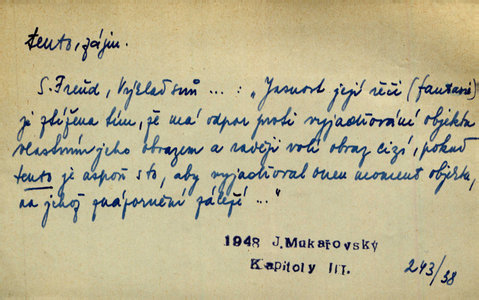 tento, zájm.
S. Freud, Výklad snů ... : „Jasnost její řeči (fantasie)
je ztížena tím, že má odpor proti vyjadřování objektu
vlastním jeho obrazem a raději volí obraz cizí, pokud
tento je aspoň s to, aby vyjadřoval onen moment objektu,
na jehož znázornění záleží ..."
1948 J. Mukařovský
Kapitoly III.
243/38